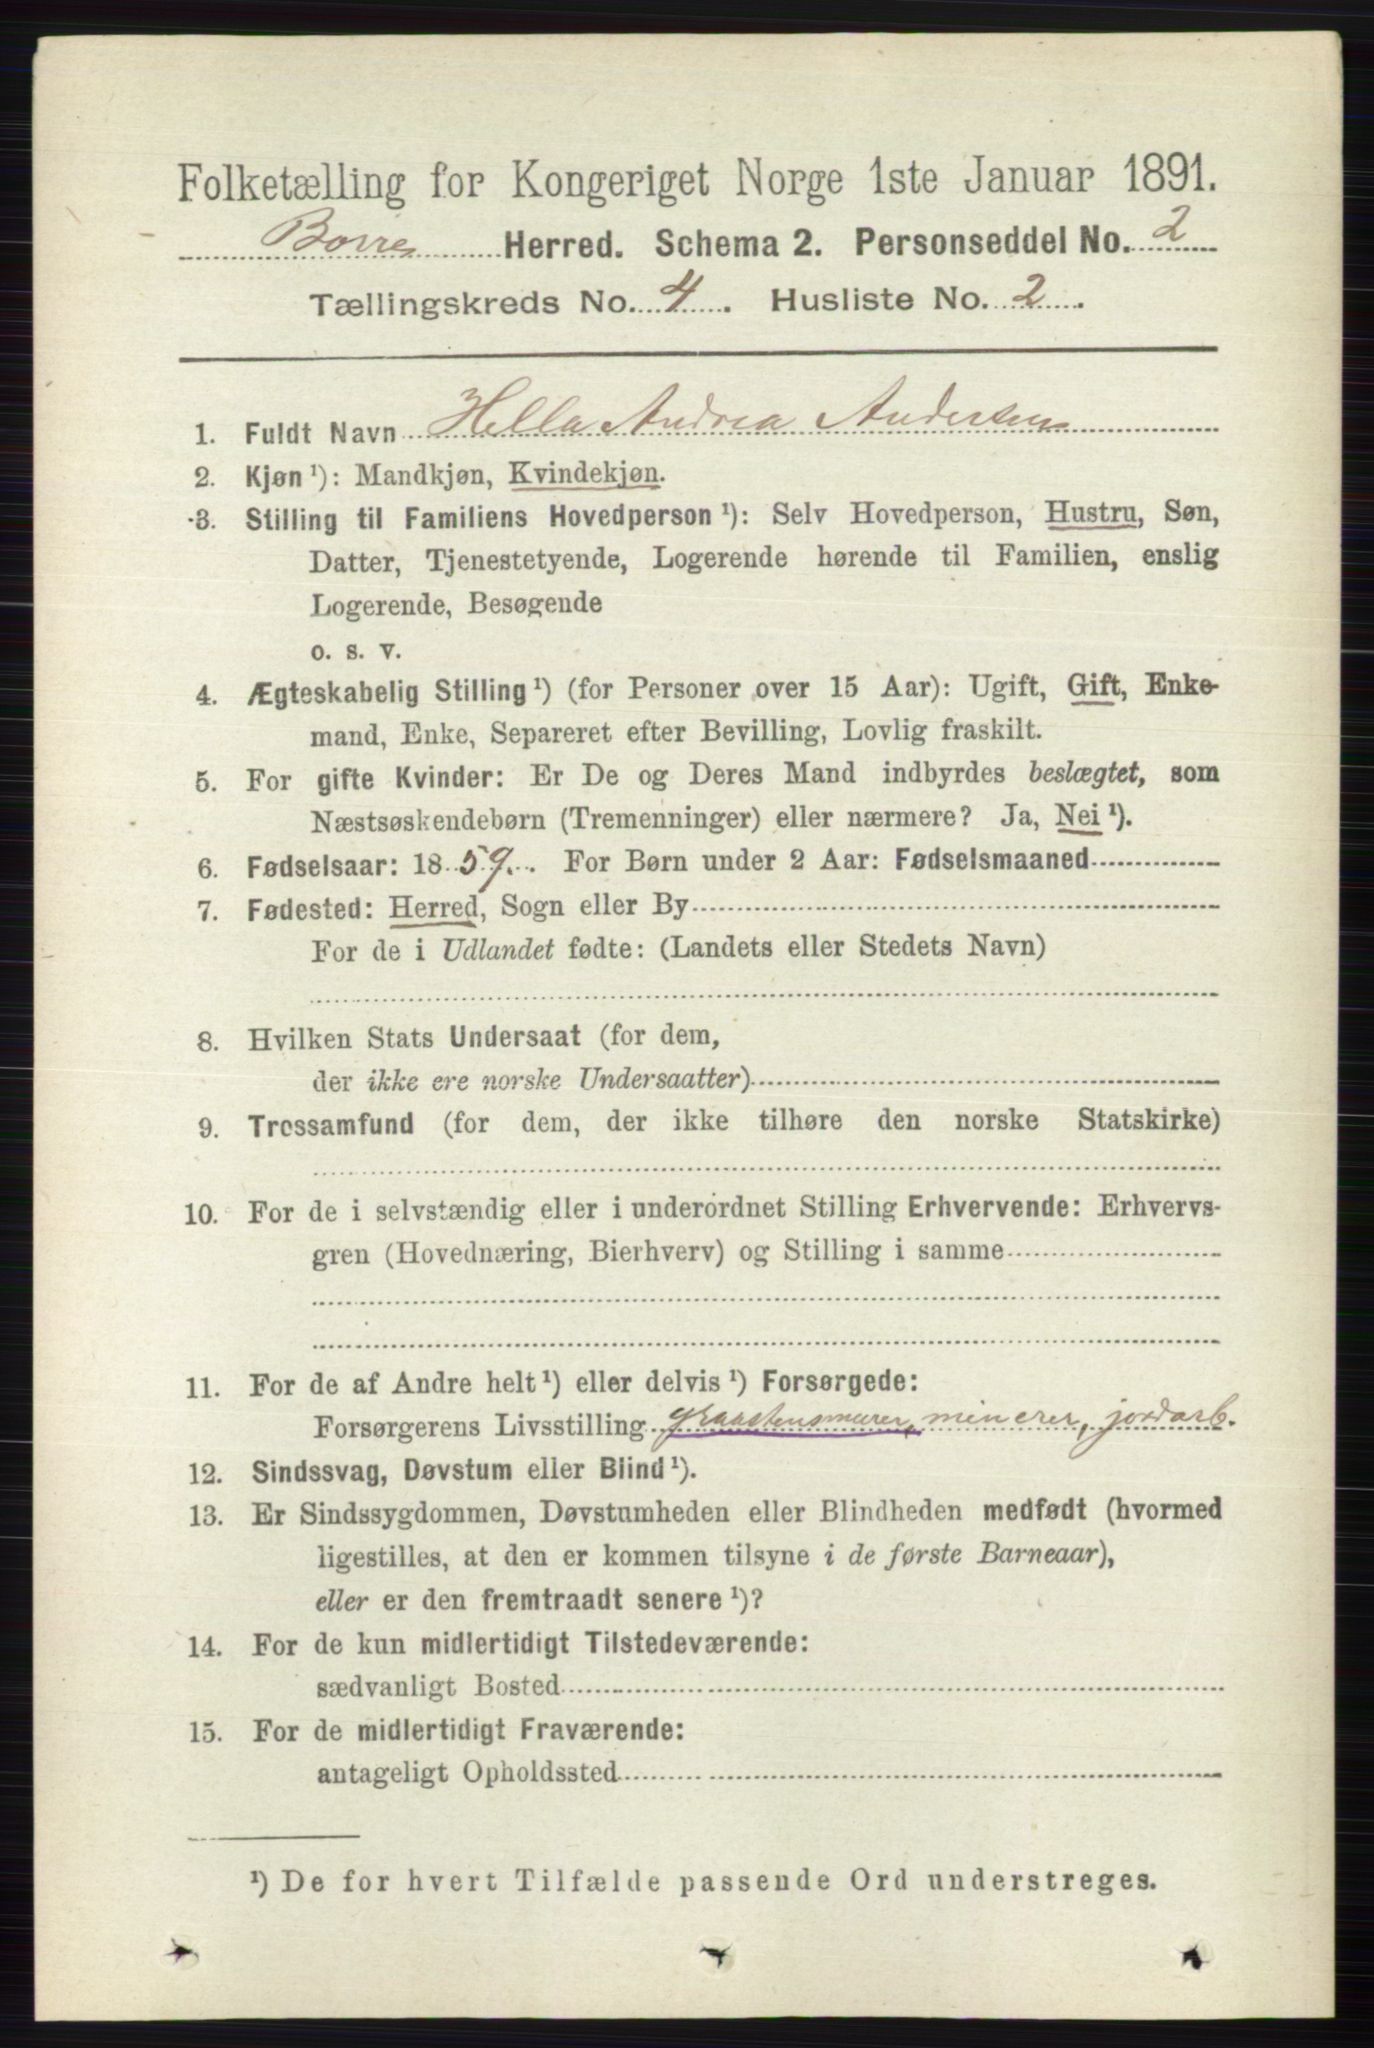 Folketælling for Kongeriget Norge 1ste Januar 1891.
Borre Herred. Schema 2. Personseddel No. 2
Tællingskreds No. 4. Husliste No. 2.
1. Fuldt Navn Hella Andrea Andersen
2. Kjøn ¹): Mandkjøn, Kvindekjøn.
3. Stilling til Familiens Hovedperson ¹): Selv Hovedperson, Hustru, Søn,
Datter, Tjenestetyende, Logerende hørende til Familien, enslig
Logerende, Besøgende
o. s. v.
4. Ægteskabelig Stilling ¹) (for Personer over 15 Aar): Ugift, Gift, Enke-
mand, Enke, Separeret efter Bevilling, Lovlig fraskilt.
5. For gifte Kvinder: Er De og Deres Mand indbyrdes beslægtet, som
Næstsøskendebørn (Tremenninger) eller nærmere? Ja, Nei ¹).
6. Fødselsaar: 1859. For Børn under 2 Aar: Fødselsmaaned
7. Fødested: Herred, Sogn eller By
For de i Udlandet fødte: (Landets eller Stedets Navn)
8. Hvilken Stats Undersaat (for dem,
der ikke ere norske Undersaatter)
9. Trossamfund (for dem, der ikke tilhøre den norske Statskirke)
10. For de i selvstændig eller i underordnet Stilling Erhvervende: Erhvervs-
gren (Hovednæring, Bierhverv) og Stilling i samme
11. For de af Andre helt ¹) eller delvis ¹) Forsørgede:
Forsørgerens Livsstilling graastensmurer, minerer, jordarb.
12. Sindssvag, Døvstum eller Blind ¹).
13. Er Sindssygdommen, Døvstumheden eller Blindheden medfødt (hvormed
ligestilles, at den er kommen tilsyne i de første Barneaar),
eller er den fremtraadt senere ¹)?
14. For de kun midlertidigt Tilstedeværende:
sædvanligt Bosted
15. For de midlertidigt Fraværende:
antageligt Opholdssted
¹) De for hvert Tilfælde passende Ord understreges.